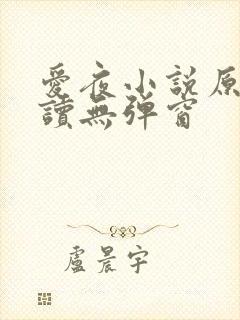 愛夜小說原
讀無彈窗
盧晨宇